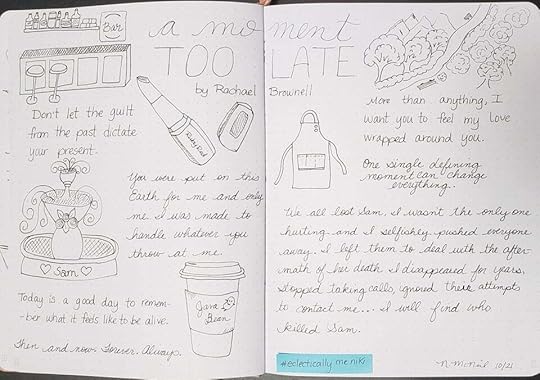 Bar
a moment
TOO LATE
by Rachael Brownell
Don't let the guilt
from the past dictate
your present.
Ruby Red
You were put on this
Earth for me and only
me. I was made to
handle whatever you
throw at me.
Sam
Today is a good day to remem-
-ber what it feels like to be alive.
Then and now. Forever. Always.
Java
Bean
More than anything, I
want you to feel my love
wrapped around you.
One single defining
moment can change
everything..
We all lost Sam. I wasn't the only one
hurting and I selfishly pushed everyone
away. I left them to deal with the after-
math of her death. I disappeared for years,
stopped taking calls, ignored their attempts
to contact me... I will find who
killed Sam.
#eclectically me niki
N. McNeil 10/21